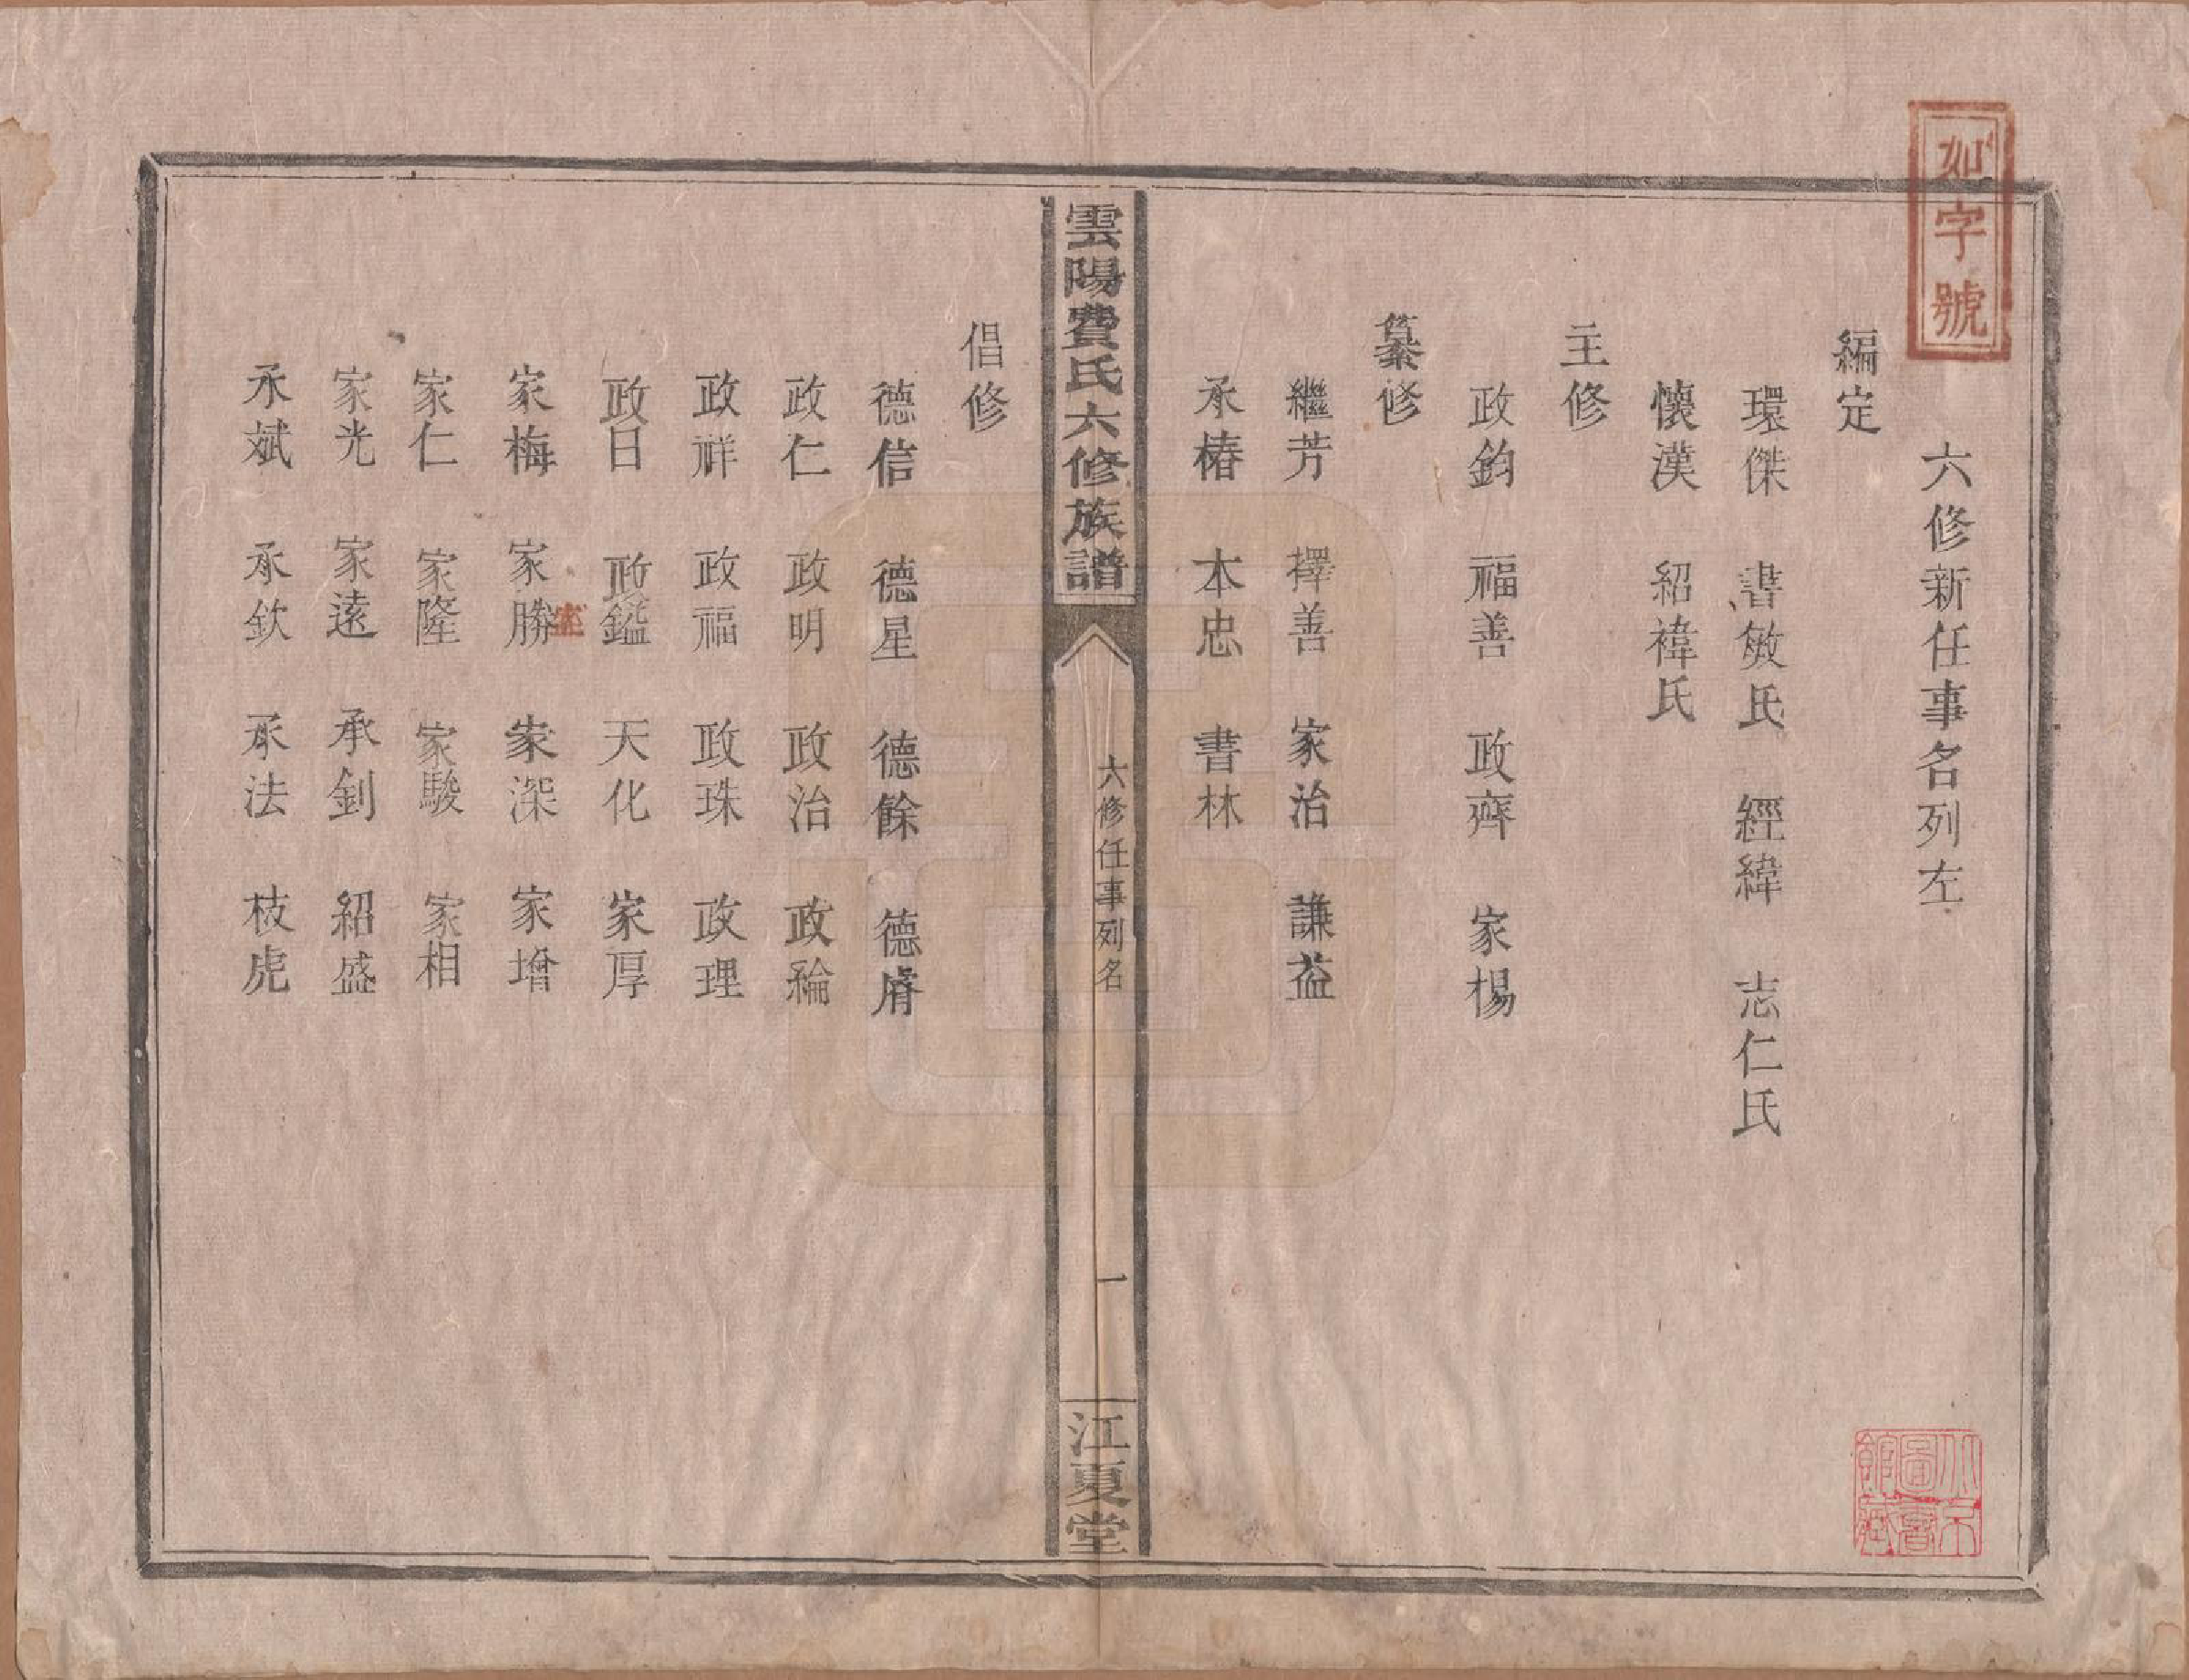 如字號
六修新任事名列左
編定
環傑　書敏氏　經緯　志仁氏
懷漢　紹禕氏
主修
政鈞　福善　政齊　家楊
纂修
繼芳　擇善　家治　謙益
承椿　本忠　書林
雲陽費氏六修族譜
六修任事列名
一
江夏堂
倡修
德信　德星　德餘　德脣
政仁　政明　政治　政綸
政祥　政福　政珠　政理
政日　政鎰　天化　家厚
家梅　家勝　家深　家增
家仁　家隆　家駿　家相
家光　家遠　承釗　紹盛
承斌　承欽　承法　枝虎
北京圖書館藏